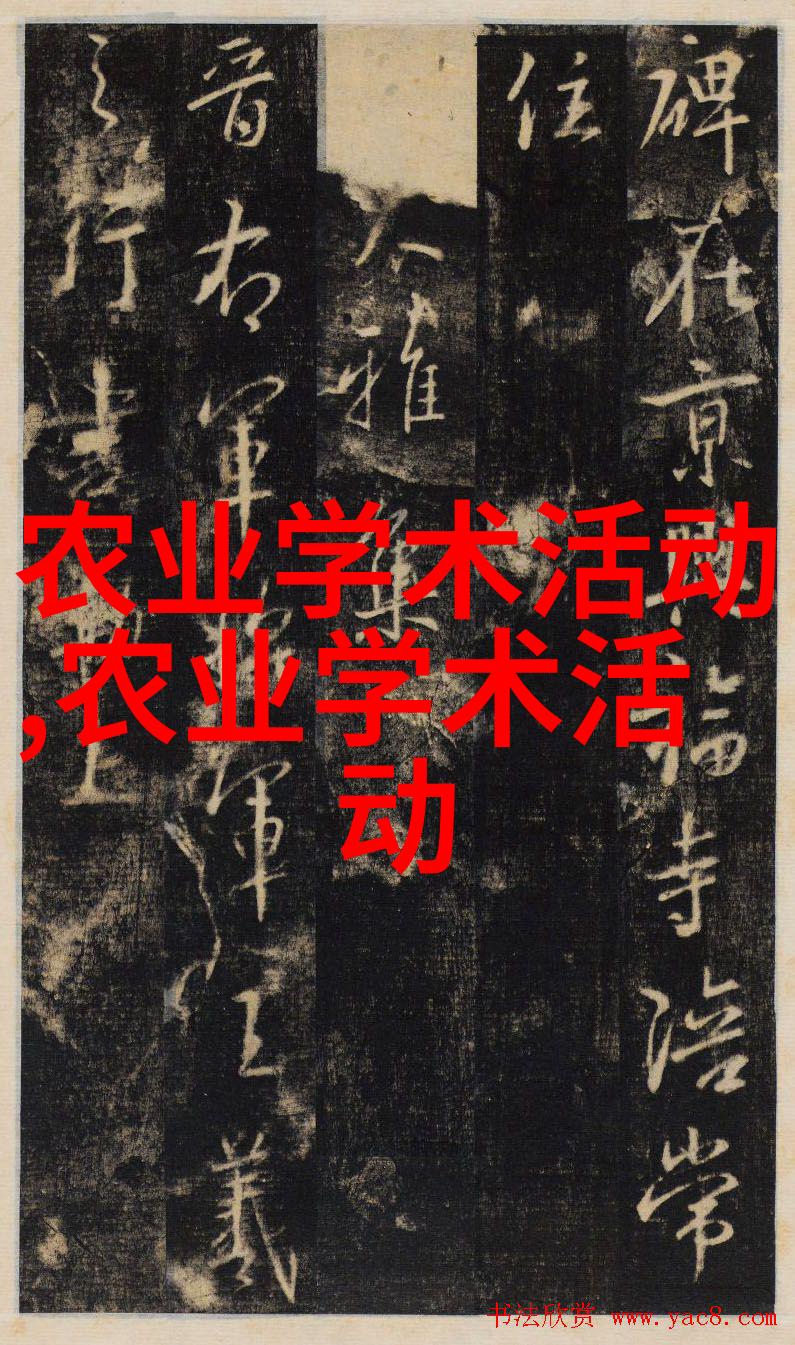 碑在京興福寺陪常
住
大雅集
晋右軍將軍王羲
之行書勒上
农业学术活动
,农业学术活
动
书法欣赏 www.yac8.com